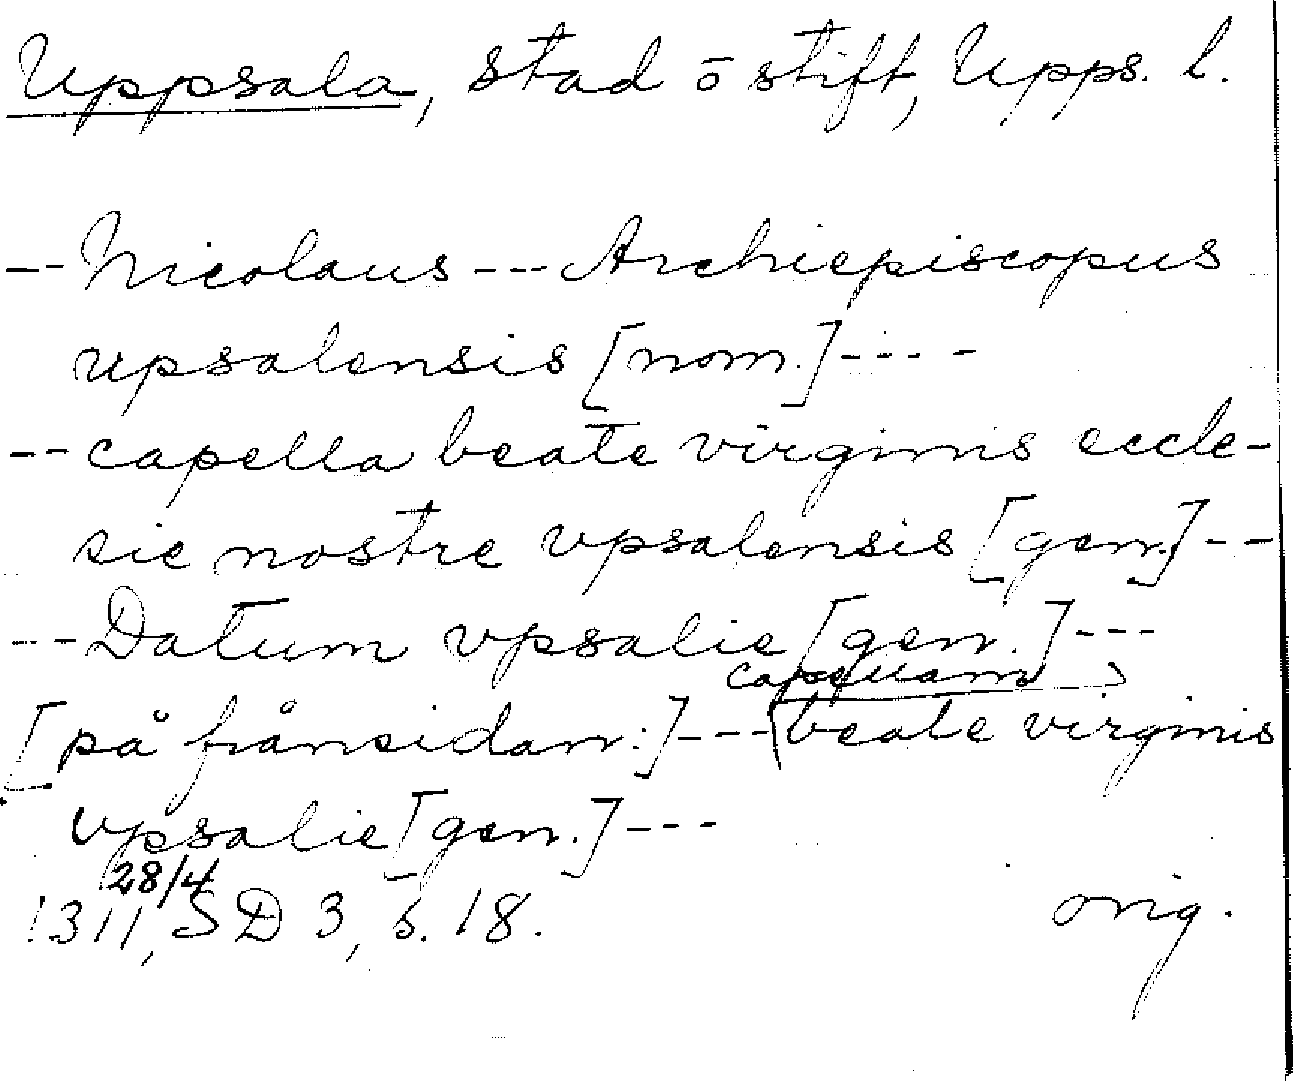 Uppsala, stad o stift, Upps. l.
-- Nicolaus --- Archiepiscopus
upsalensis [nom.] ----
-- capella beate virginis eccle-
sie nostre vpsalensis [gen.] --
-- Datum vpsalie [gen.] ---
capellam
[på frånsidan:] --- beate virginis
vpsalie [gen.] ---
28/4
1311, SD 3, s. 18. orig.